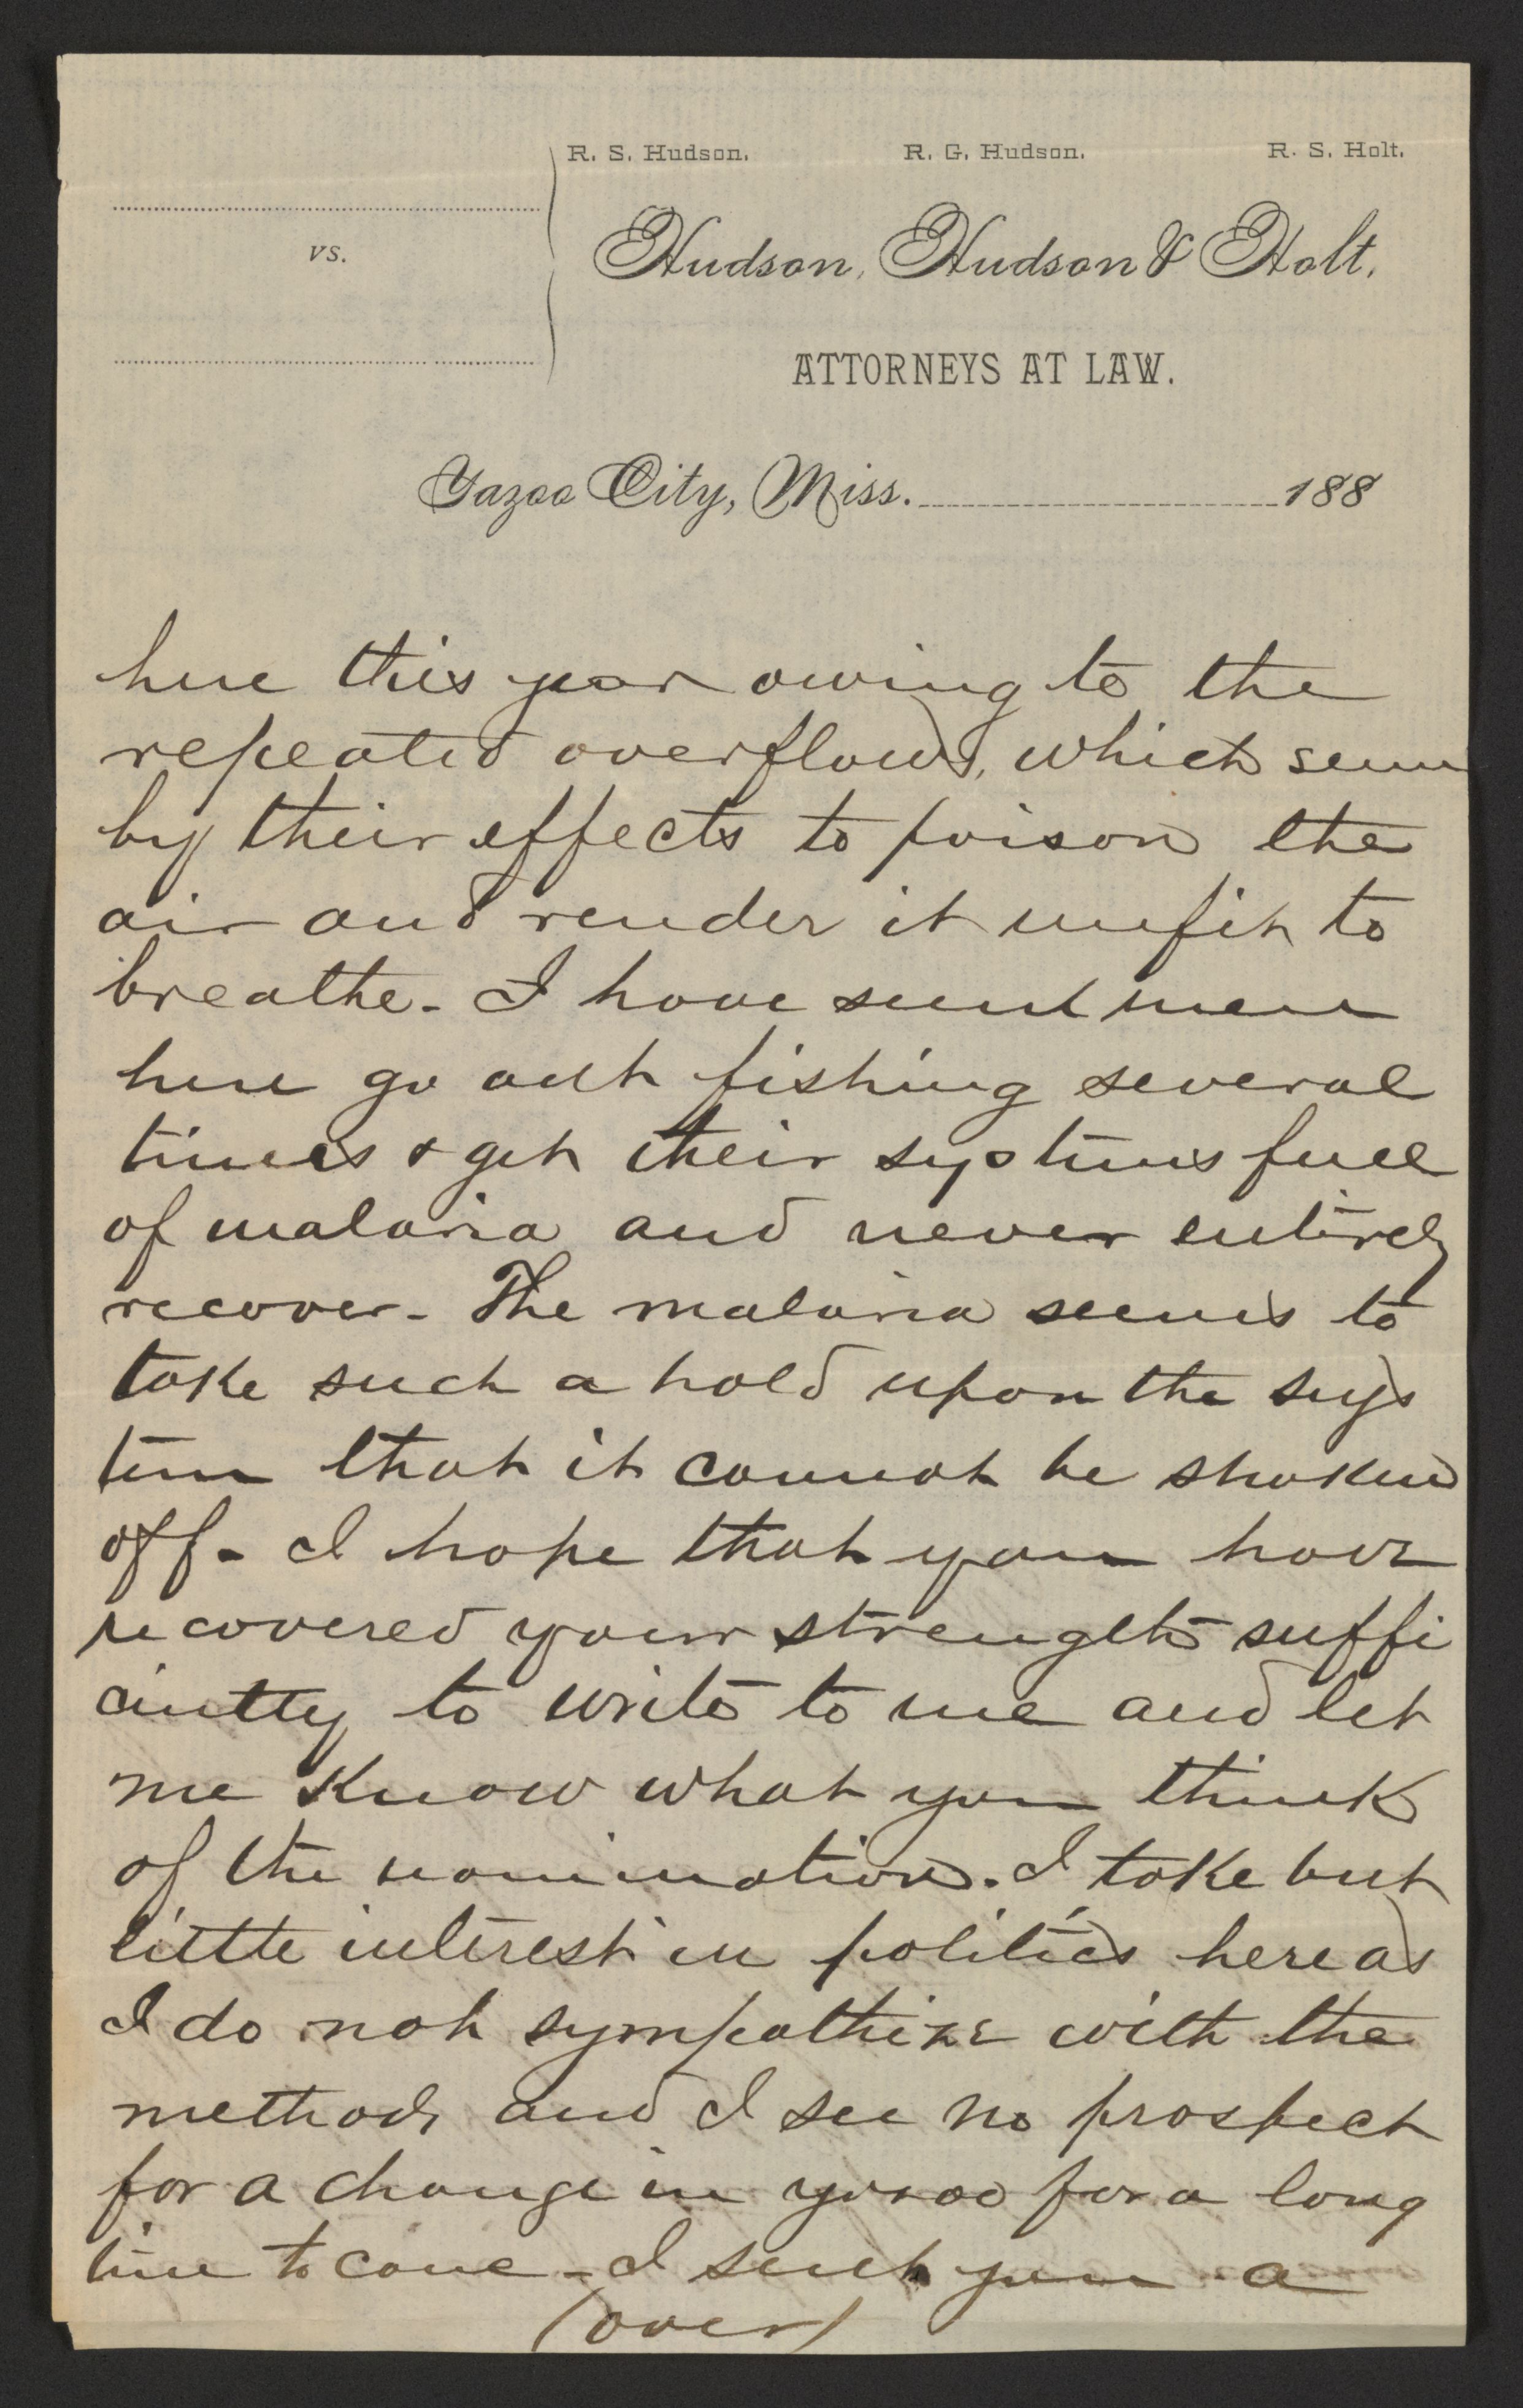 R. S. Hudson. R. G. Hudson. R. S. Holt.
vs.
Hudson, Hudson & Holt.
ATTORNEYS AT LAW.
Yazoo City, Miss. 188
here this year owing to the
repeated overflows, which seem
by their effects to poison the
air and render it unfit to
breathe - I have seen men
here go out fishing several
times & get their systems full
of malaria and never entirely
recover - The malaria seems to
take such a hold upon the sys
tem that it cannot be shaken
off - I hope that you have
recovered your strength suffi
ciently to write to me and let
me know what you think
of the nomination. I take but
little interest in politics here as
I do not sympathize with the
methods and I see no prospect
for a change in Yazoo for a long
time to come - I send you a
(over)